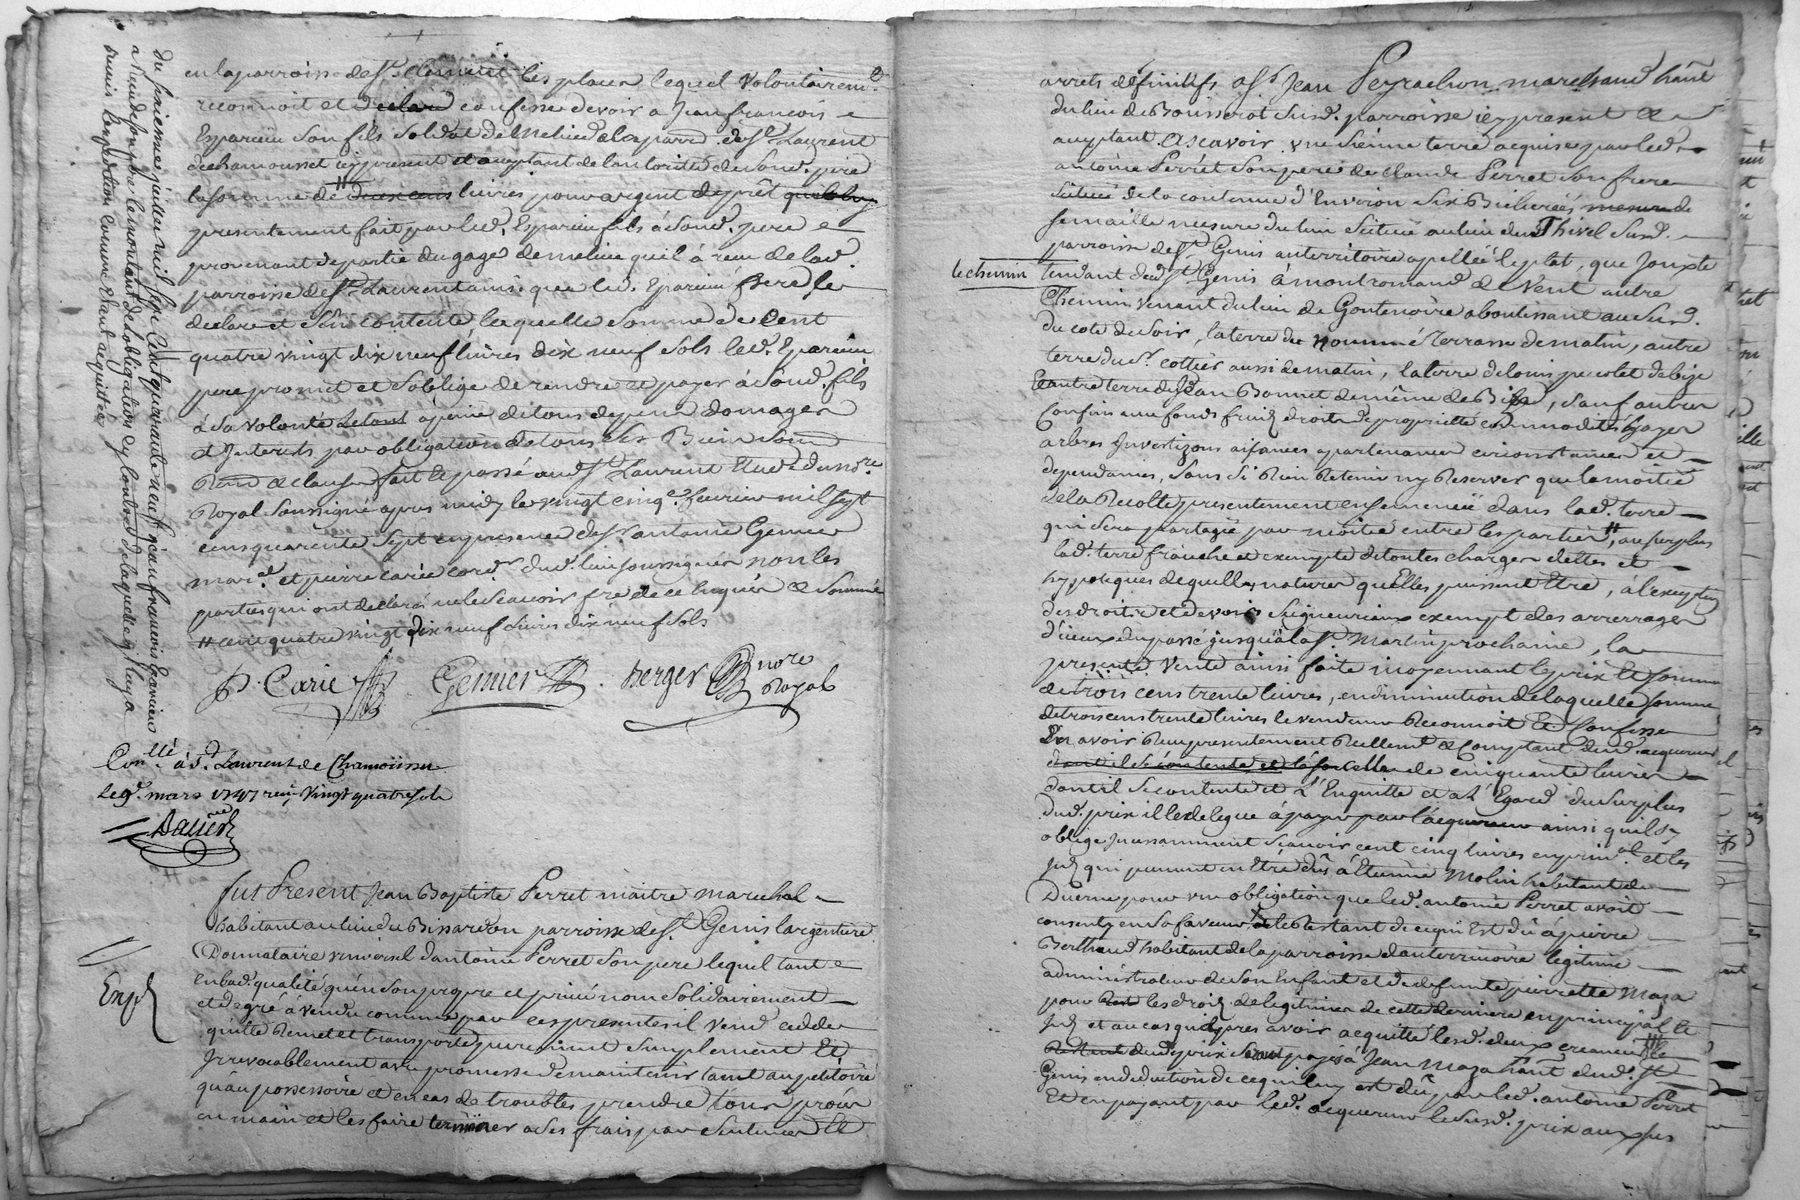 en la parroisse de St Clement les places lequel volontairemt
reconnoit et declare confesse devoir a Jean francois
Esparcieu son fils soldat de Melice de la parre de St Laurent
de chamousset icy present et acceptant de l'autorité de sond. pere
la somme de # deux cens livres pour argent de prêt quil luy
presentement fait par led. Esparcieu fils à sond. pere
provenant de partie du gage de melice quil à reçu de lad.
parroisse de St Laurent ainsi que led. Eparcieu pere le
declare et s'en contente laquelle somme de Cent
quatre vingt dix neuf livres dix neuf sols led. Eparcieu
pere promet et s'oblige de rendre et payer à sond. fils
à sa volonté à peine de tous depens domages
et Interests par obligation de tous ses Biens
Renon. & clauses fait et passé aud. St Laurent Etude du nore
Royal soussigné apres midy le vingt cinqe fevrier mil sept
cens quarente sept en presence de sr antoine Genier
maral et pierre carie cordr dud. lieu soussignés non les
parties qui ont declaré ne le scavoir fre de ce Enquis & sommé
# cent quatre vingt dix neuf livres dix neuf sols
P. Carie Genier Berger nore Royal
Conllé à St. Laurent de Chamousset
le 9e mars 1747 reçu vingt quatre sols
Dalier
du jean francois Esparcieu
a le montant de l'obligation cy contre de laquelle
fut Present Jean Baptiste Perret maitre marechal
habitant au lieu du Bissardon parroisse de St Genis largentiere
Donnataire universel d'antoine Perret son pere lequel tant
Exp
en lad. qualité qu'en son propre et privé nom solidairement
et de gré à vendu comme par ces presentes il vend cedde
quitte Remet et transporte purement simplement Et
Irrevocablement avec promesse de maintenir tant au petitoire
qu'au possessoire et en cas de troubles prendre tour pour
en main et les faire terminer a ses frais par sentences et
arrets définitifs a Sr Jean Peyrachon marchand hant
du lieu de Rousserot susd. parroisse icy present &
acceptant. Ascavoir une sienne terre acquise par led.
antoine Perret son pere de claude Perret son frere
Scituée de la contenue d'Environ six Bicherées mesure de
semaille mesure du lieu Scituée au lieu de Thivel susd.
parroisse de St Genis au territoire apellée le plat, que Jouxte
le chemin tendant de St Genis à montromand de vent autre
Chemin venant du lieu de Gontenoire aboutissant au susd.
du coté du soir, la terre du nommé Terrasse de matin, autre
terre du sr cottier aussi de matin, la terre de louis pecolet de bize
Et autre terre de Jean Bonnet de même de Bize, sauf autres
Confins avec fonds fruits droits de proprietté commodités
arbres Investizons aisances apartenances circonstances et
dependances, sans si Rien Retenir ny Reserver que la moitié
de la Recolte presentement ensemencée dans lad. terre
qui sera partagée par moitié entre les parties #, au surplus
lad. terre franche et exempte de toutes charges dettes et
hypoteques de quelles natures qu'Elles puissent Etre, à l'exception
des droits et devoirs seigneuriaux exempt des arrerages
d'iceux du passé jusqu'à la St Martin prochaine, la
presente vente ainsi faite moyennant le prix Et somme
de trois cens trente livres, en diminution de laquelle somme
de trois cens trente livres le vendeur Reconnoit Et Confesse
En avoir Reçu presentement Reellemt & Comptant dud. acquereur
dont il se contente et celle de cinquante livres
dont il se contente et l'Enquitte et a l'Egard du surplus
dud. prix il le delegue à payer par l'acquereur ainsi quil sy
oblige Incessamment scavoir cent cinq livres en prinal et les
Jnts qui peuvent en Etre dûs à Etienne Molin habitant de
Duerne pour une obligation que led. antoine Perret avoit
consenty en sa faveur, et le Restant de ce qui Est dû à pierre
Berthaud habitant de la parroisse d'auterrivoire legitime
administrateur de son Enfant et de defunte pierrette Maza
pour les droits de legitimes de cette derniere en principal et
Jnts et au cas qu'apres avoir acquitté lesd. deux creances le
Restant dud. prix sera payé à Jean Maza hant dud. St
Genis en deduction de ce qui luy est dû par led. antoine Perret
Et en payant par led. acquereur le susd. prix aux sus